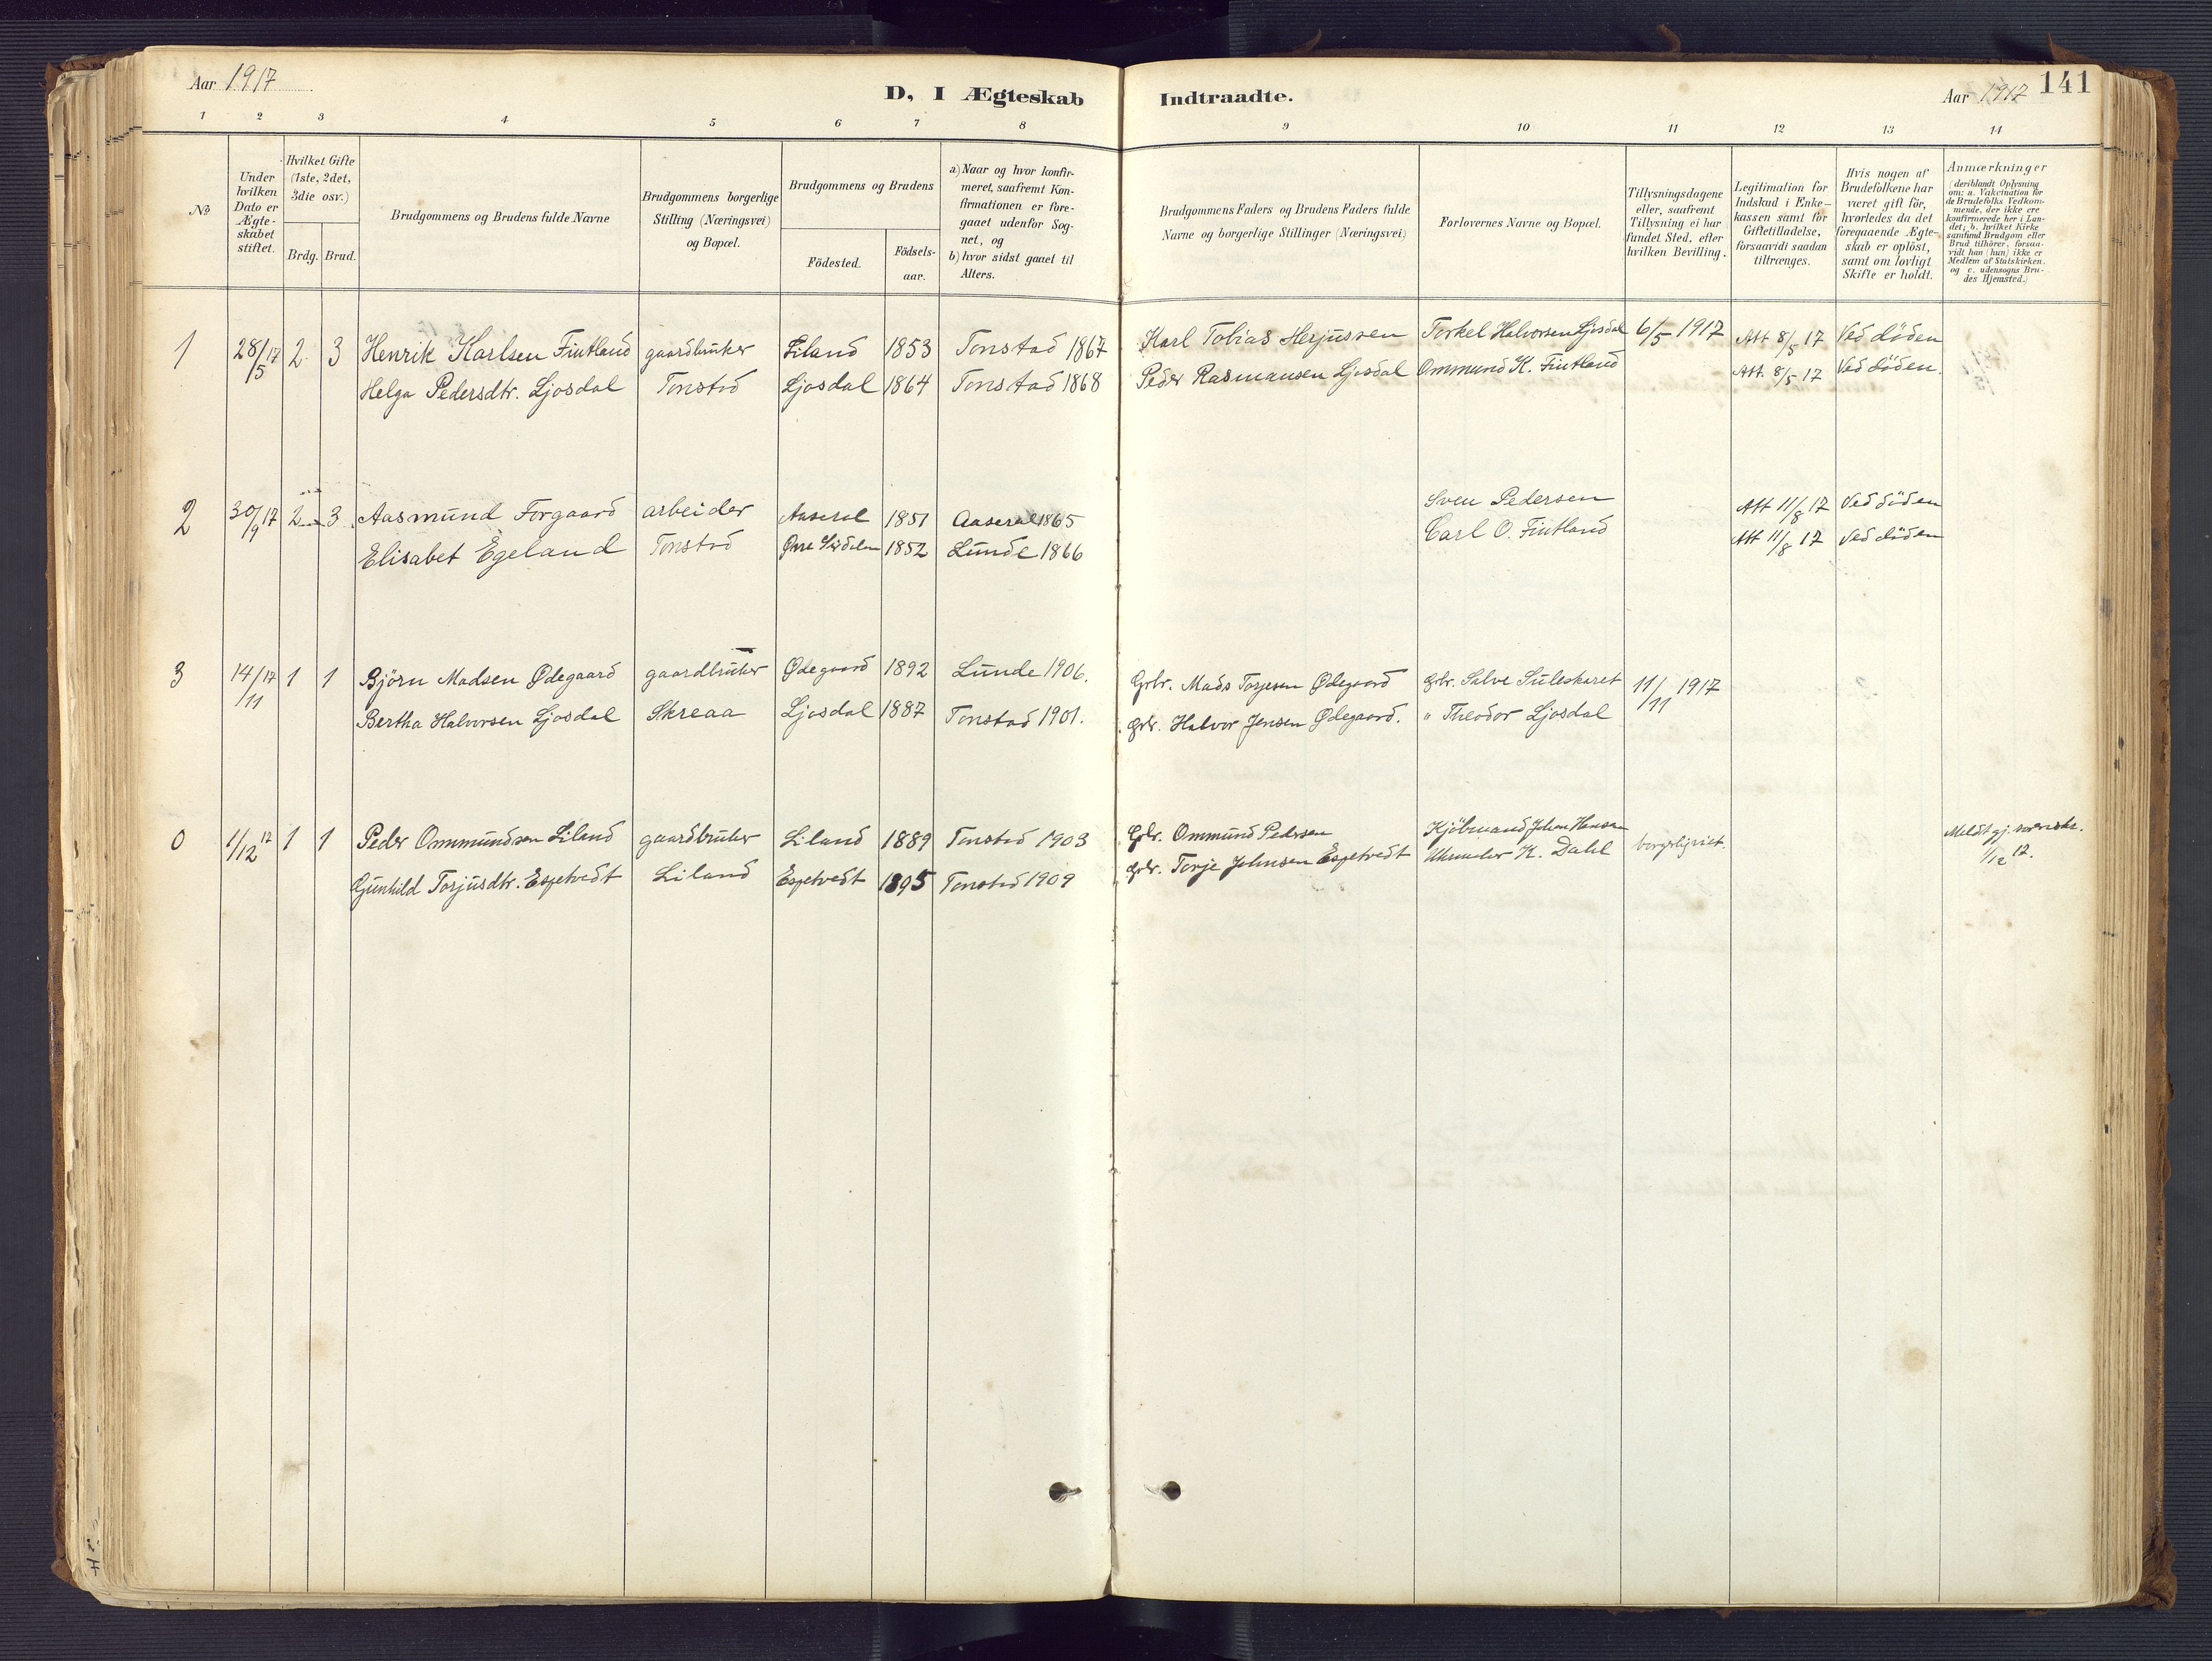 Aar 1917
D, I Ægteskab Indtraadte.
Aar 1917 141
1 2 3 4 5 6 7 8 9 10 11 12 13 14
№
Under
hvilken
Dato er
Ægte-
skabet
stiftet.
Hvilket Gifte
(1ste, 2det,
3die osv.)
Brdg. Brud.
Brudgommens og Brudens fulde Navne
Brudgommens borgerlige
Stilling (Næringsvei)
og Bopæl.
Brudgommens og Brudens
Födested.
Födsels-
aar.
a) Naar og hvor konfir-
meret, saafremt Kon-
firmationen er fore-
gaaet udenfor Sog-
net, og
b) hvor sidst gaaet til
Alters.
Brudgommens Faders og Brudens Faders fulde
Navne og borgerlige Stillinger (Næringsvei)
Forlovernes Navne og Bopæl.
Tillysningsdagene
eller, saafremt
Tillysning ei har
fundet Sted, efter
hvilken Bevilling.
Legitimation for
Indskud i Enke-
kassen samt for
Giftetilladelse,
forsaavidt saadan
tiltrænges.
Hvis nogen af
Brudefolkene har
været gift för,
hvorledes da det
foregaaende Ægte-
skab er oplöst,
samt om lovligt
Skifte er holdt.
Anmærkninger
(deriblandt Oplysning
om: a. Vakcination for
de Brudefolks Vedkom-
mende, der ikke ere
konfirmerede her i Lan-
det; b. hvilket Kirke
samfund Brudgom eller
Brud tilhører, forsaa-
vidt han (hun) ikke er
Medlem af Statskirken.
og c. udensogns Bru-
des Hjemsted.)
1 28/5 17 2 3 Henrik Karlsen Fintland gaardbruker Liland 1853 Tonstad 1867 Karl Tobias Herjussen Torkel Halvorsen Ljosdal 6/5 1917 Att 8/5 17 Ved döden
Helga Pedersdtr. Ljosdal Tonstad Ljosdal 1864 Tonstad 1868 Peder Rasmussen Ljosdal Ommund K. Fintland Att. 8/5 17 Ved döden.
2 30/9 17 2 3 Aasmund Forgaard arbeider Aaseral 1851 Aaseral 1865 Sven Pedersen Att 11/8 17 Ved döden
Elisabet Egeland Tonstad Øvre 1852 Lunde 1866 Carl O. Fintland Att 11/8 17 Ved döden
3 14/11 17 1 1 Björn Madsen Ødegaard gaardbruker Ødegaard 1892 Lunde 1906. Grbr. Mads Torjesen Ødegaard grbr. Salve Suleskaret 11/11 1917
Bertha Halvorsen Ljosdal Skreaa Ljosdal 1887 Tonstad 1901. grbr. Halvor Jensen Ødegaard. " Theodor Ljosdal
0 1/12 17 1 1 Peder Ommundsen Liland gaardbruker Liland 1889 Tonstad 1903 Grbr. Ommund Pedersen Kjöbmand Johan Hansen borgerligviet. Meldt gj.
Gunhild Torjusdtr. Espetvedt Liland Espetvedt 1895 Tonstad 1909 grbr. Torje Johnsen Espetvedt Uhrmaker K. Dahl 1/12 17.